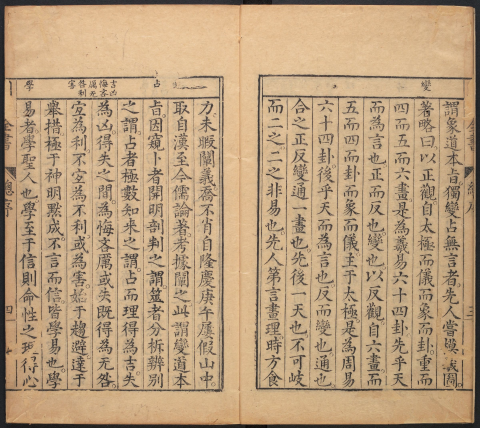 變
全書
總序
三
謂象道本㫖獨變占無言者先人嘗圖
著略曰以正觀自太極而儀而象而卦重而
四而五而六畫是為羲易六十四卦先乎天
而為言也正而反也變也以反觀自六畫而
五而四而卦而象而儀至于太極是為周易
六十四卦後乎天而為言也反而變也通也
合之正反變通一畫也先後一天也不可岐
而二之二之非易也先人第言畫理時方食
占
吉凶
悔吝
厲无
咎利
害
學
力未暇闡義喬不肖自隆慶庚午屢假山中
取自漢至今儒論著考據闡之此謂變道本
㫖因窺卜者開明剖判之謂筮者分柝辨别
之謂占者極數知來之謂占而理得為吉失
為凶得失之間為悔吝厲或失既得為无咎
宜為利不宜為不利或為害始于趨避達于
舉措極于神明默成不言而信皆學易也學
易者學聖人也學至于信則命性之理得心
全書
總序
四